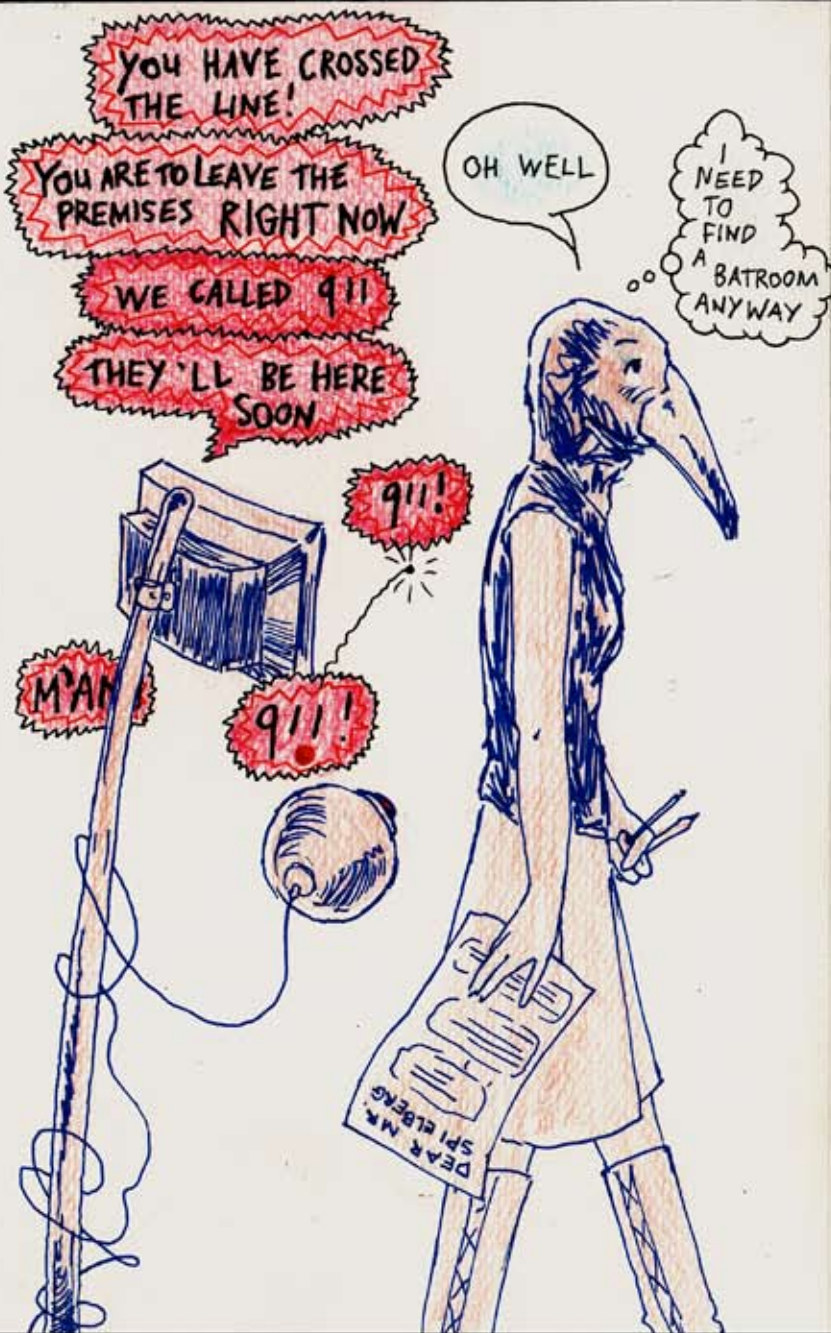 YOU HAVE CROSSED
THE LINE!
YOU ARE TO LEAVE THE
PREMISES RIGHT NOW
WE CALLED 911
THEY'LL BE HERE
SOON
OH WELL
I
NEED
TO
FIND
A
BATROOM
ANYWAY
911!
M'AM
911!
DEAR MR.
SPIELBERG